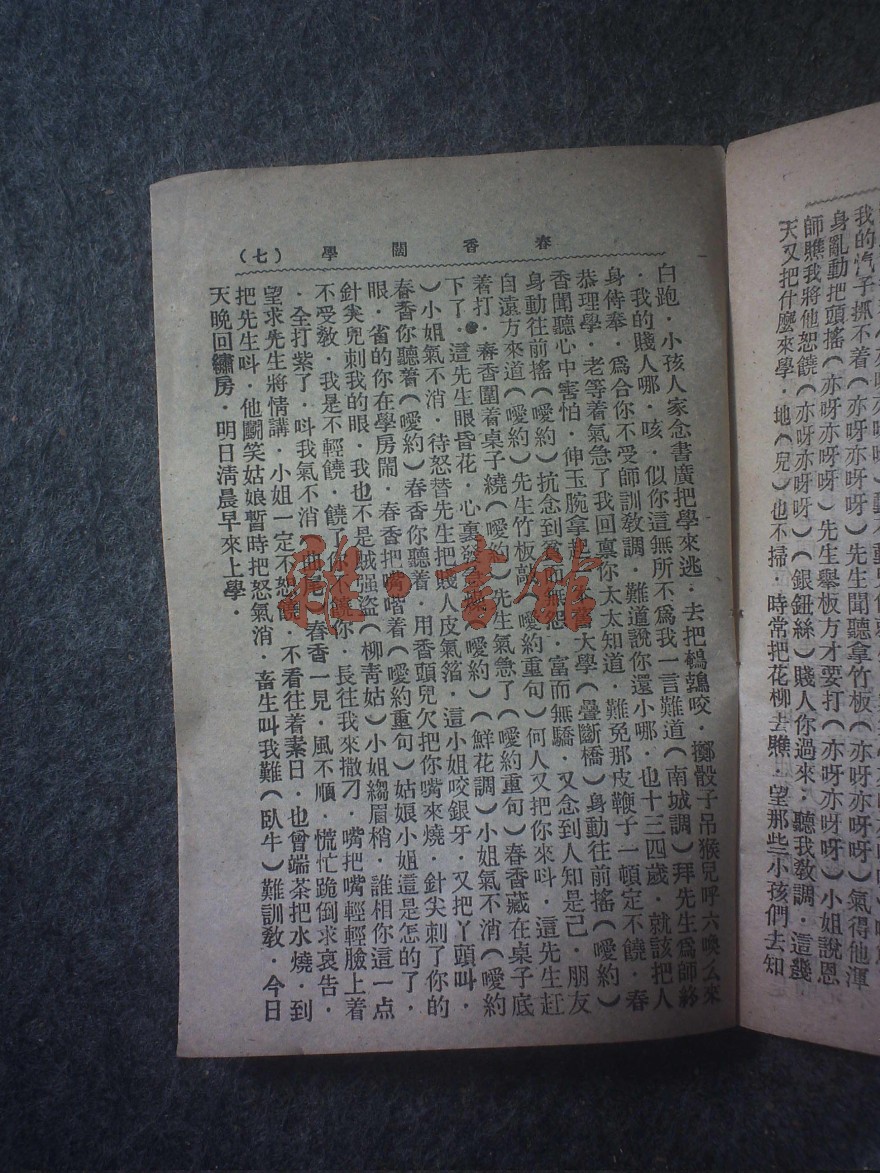 我的汽子抓不着（亦呀亦呀呀）先生聞聽拿竹板（亦呀亦呀呀）氣得他渾
身亂動把頭搖（亦呀亦呀呀）先生舉板方才要打（亦呀亦呀呀）小姐說恩
師瞧我將他恕饒（亦呀亦呀呀）（銀鈕絲）賤人你過來．聽我敎調．這幾
天又把什麼來學．地（兒）也不掃．時常把花柳去瞧．望那些小孩們去知
春香鬧學（七）
白跑．小孩人家念書廣把學來逃．去把鵪鶉咬．擲骰子吊猴兒呼六喚么來
．我的賤人哪．咳．似你這無所不爲我一言難道（南城調）拜先生爲師終
身侍奉．爲合你不受師訓敎調．難道說你還小哪．也十三四歲．就該把人
恭理學．老等着氣急了我回稟你太太知道．難免那皮鞭子一頓定不饒．春
香聞聽心中害怕．伸玉腕拿起大學（疊斷橋）身動往前搖（噯約）
身動往前搖（噯約）抗念到貧而無怨．富而無驕．又念到人知是己．朋友
自遠方來道（噯約）先生竹板敲（噯約重句）何人又把你來呌．這先生赶
着打．春香圍着桌子繞（噯約）先生氣急了（噯約重句）春香藏在桌子底
下了．這先生眼昏花．心裏（鮮花調）小姐氣不消（噯約
）小姐氣不消．待怒替先生把賤人皮氣㨄．這小姐咬銀牙．又把丫頭呌．
春香你聽着（噯約）春香你聽着．用香頭兒欠把你嘴來燒．針尖刺了你的
眼．省的你在學房閙．春香把嘴嘈着（噯約重句）姑娘小姐這是怎的了．
針尖兒刺我的眼．我也不是贼强盜（柳靑姑）小姐縐眉梢．誰相你這一点
不受敎．我是不輕饒．饒了你不饒你．長往我來撒刁．嘴把嘴輕輕臉上着
．全打紫了．呌我氣不消．春香一見．風不順．慌忙跪倒求哀告．
望求先生將情講．小姐一定不恕饒．不看往着素日．也曾端茶把水燒．到
把先生呌．他嘟笑姑娘暫時把怒氣消．畜生叫我難（臥牛）難訓敎．今日
天晚回繡房．明日淸晨早來上學．
雜·書館